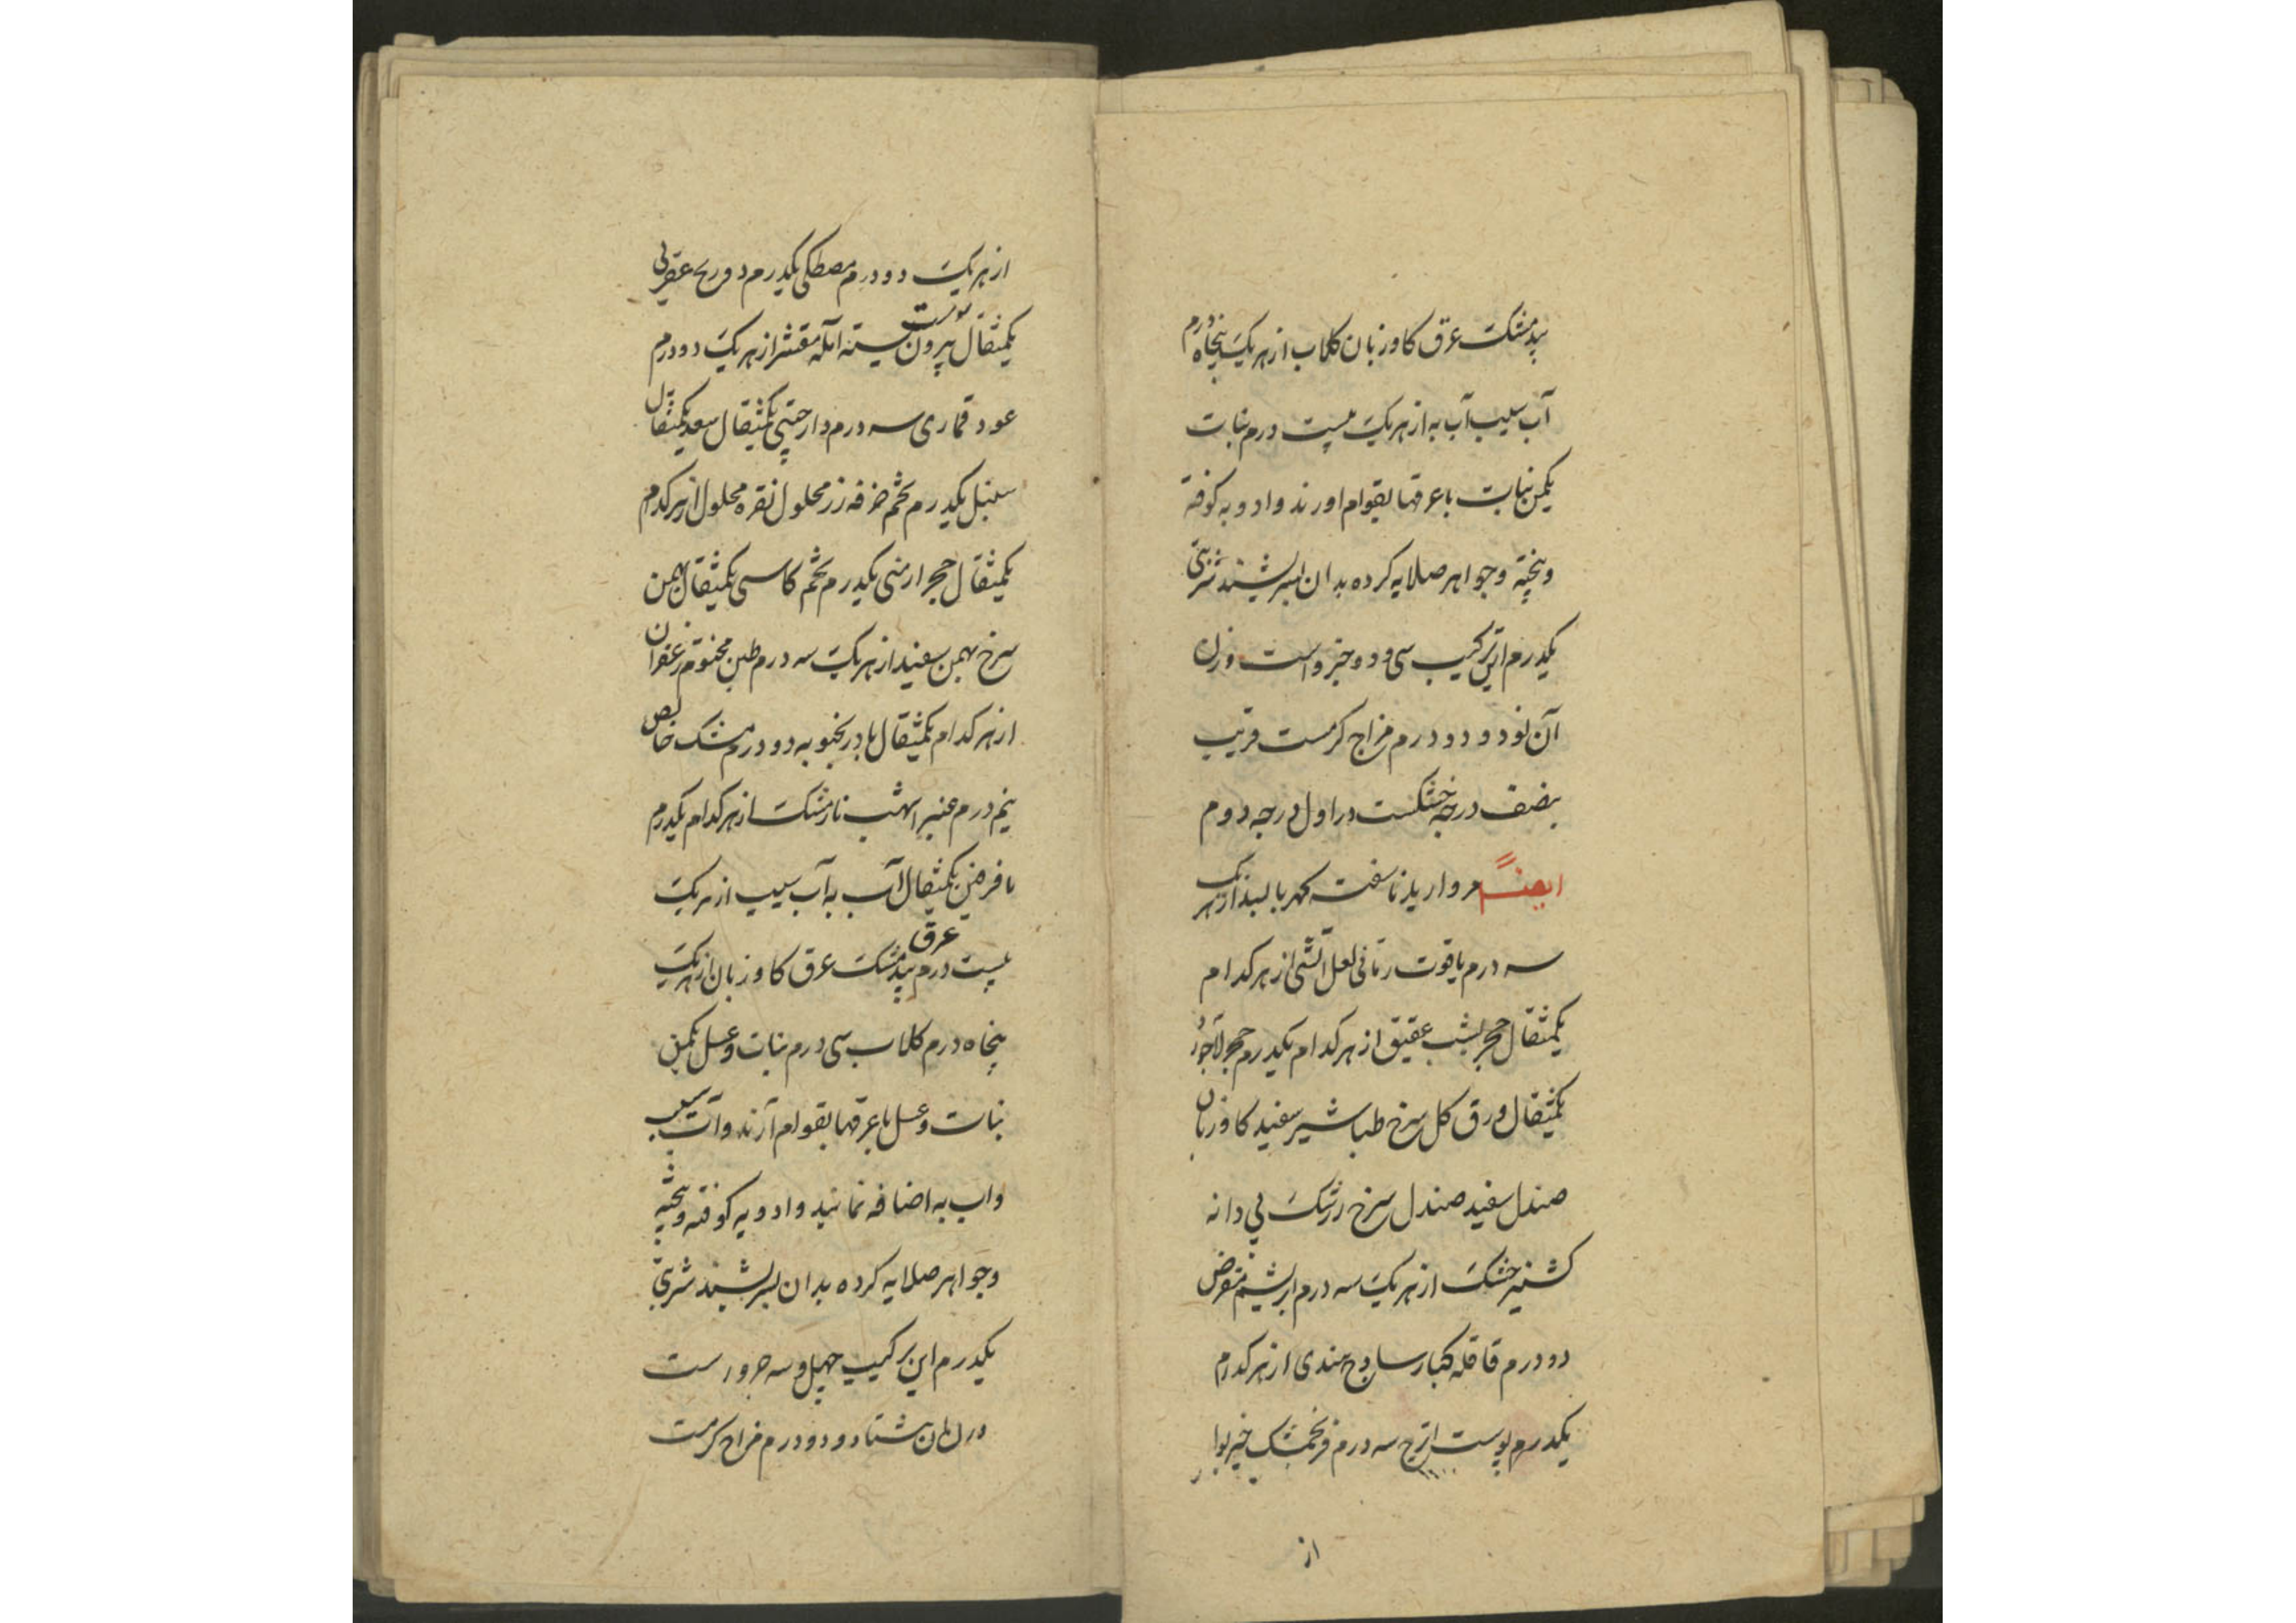 بیدمشک عرق کاوزبان کلاب از هریک پنجاه درم
آب سیب آب به از هریک بیست درم نبات
یکمن نبات با عرقها بقوام اورند و ادویه کوفته
و بیخته و جواهر صلایه کرده بدان بسریشند شربتی
یکدرم این ترکیب سی و دو جزو است وزن
آن نود و دو درم مزاج کرمست قریب
بنصف درجه خشکست در اول درجه دوم
ایضاً مروارید ناسفته کهربا بسد از هریک
سه درم یاقوت رمانی لعل آتشی از هر کدام
یکمثقال حجر یشب عقیق از هر کدام یکدرم حجر لاجورد
یکمثقال ورق کل سرخ طباشیر سفید کاوزبان
صندل سفید صندل سرخ زرشک بی دانه
کشنیز خشک از هریک سه درم ابریشم مقرض
دو درم قاقله کبار ساذج هندی از هر کدام
یکدرم پوست اترج سه درم فرنجمشک خیربوا
از
از هریک دو درم مصطکی یکدرم درونج عقربی
یکمثقال پوست بیرون پسته آمله مقشر از هریک دو درم
عود قماری سه درم دارچینی یکمثقال سعد یکمثقال
سنبل یکدرم تخم خرفه زر محلول نقره محلول از هر کدام
یکمثقال حجر ارمنی یکدرم تخم کاسنی یکمثقال بهمن
سرخ بهمن سفید از هریک سه درم طین مختوم زعفران
از هر کدام یکمثقال بادرنجبویه دو درم مشک خالص
نیم درم عنبر اشهب نارمشک از هر کدام یکدرم
مافرفین یکمثقال آب به آب سیب از هریک
بیست درم عرق بیدمشک عرق کاوزبان از هریک
پنجاه درم کلاب سی درم نبات و عسل یکمن
نبات و عسل با عرقها بقوام آرند و آب سیب
و اب به اضافه نمایند و ادویه کوفته و بیخته
و جواهر صلایه کرده بدان بسریشند شربتی
یکدرم این ترکیب چهل و سه جزو است
وزن آن هشتاد و دو درم مزاج کرمست